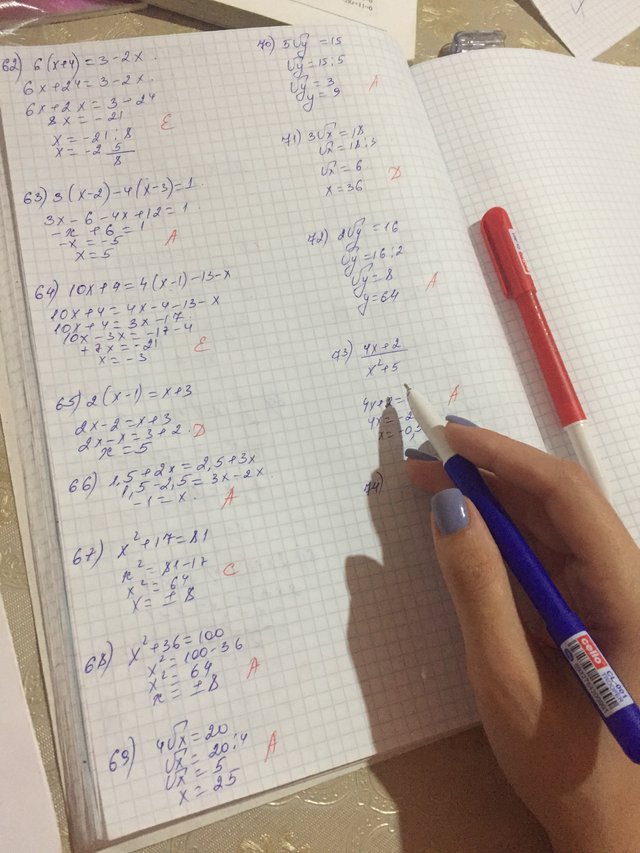 62) 6(x+4)=3-2x.
6x+24=3-2x.
6x+2x=3-24
8x=-21
x=-21:8
x=-2 5/8
E
63) 3(x-2)-4(x-3)=1.
3x-6-4x+12=1.
-x+6=1
-x=-5
x=5
A
64) 10x+4=4(x-1)-13-x
10x+4=4x-4-13-x
10x+4=3x-17.
10x-3x=-17-4
+7x=-21
x=-3
E
65) 2(x-1)=x+3
2x-2=x+3
2x-x=3+2.
x=5
D
66) 1,5+2x=2,5+3x
1,5-2,5=3x-2x.
-1=x.
A
67) x²+17=81
x²=81-17
x²=64
x=±8
C
68) x²+36=100
x²=100-36
x²=64
x=±8
A
69) 4√x=20
√x=20:4
√x=5
x=25
A
70) 5√y=15
√y=15:5
√y=3
y=9
A
71) 3√x=18
√x=18:3
√x=6
x=36
D
72) 2√y=16
√y=16:2
√y=8
y=64
A
73) 4x+2
x²+5
4x+2=
4x=-2
x=-0,5
A
74)
cello
CL-001